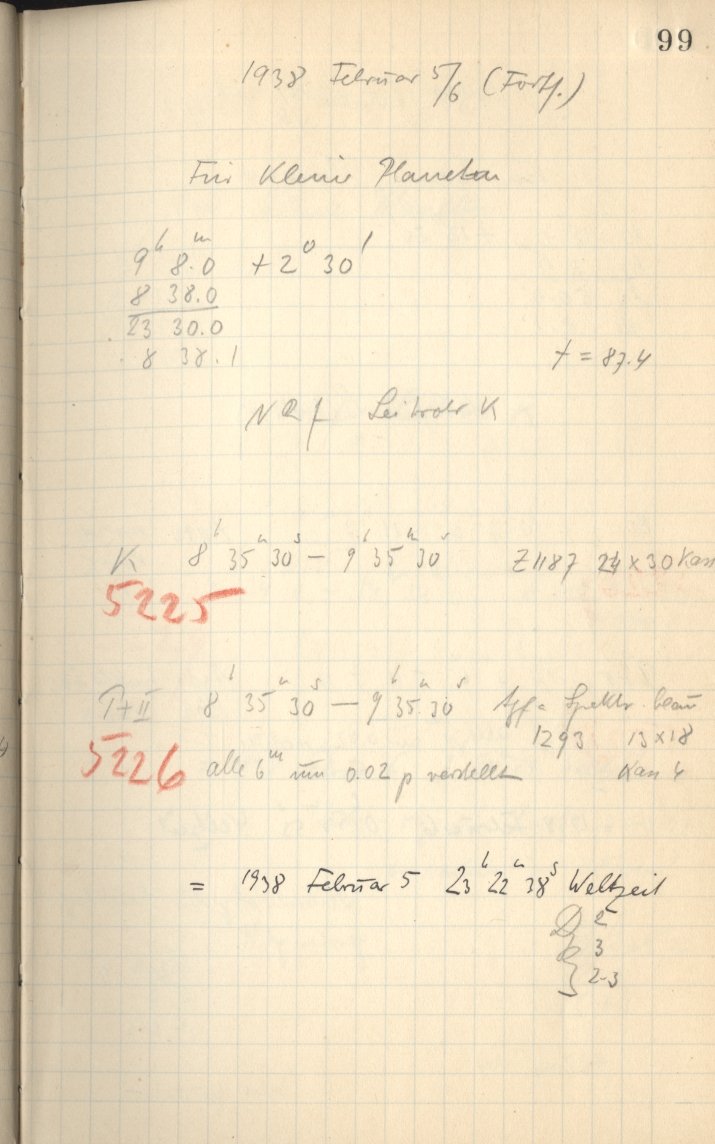 99
1938 Februar 5/6 (Fortf.)
Für Kleine Planeten
9ʰ 8.0ᵐ + 2° 30'
8 38.0
23 30.0
8 38.1
t = 87.4
Leitrohr K
K 8ʰ 35ᵐ 30ˢ — 9ʰ 35ᵐ 30ˢ Z1187 24 x 30 Kass
5225
I+II 8ʰ 35ᵐ 30ˢ — 9ʰ 35ᵐ 30ˢ Agfa Spektr. blau
1293 13 x 18
5226 alle 6ᵐ um 0.02 p verstellt Kass 4
= 1938 Februar 5 23ʰ 22ᵐ 38ˢ Weltzeit
D 2
3
2-3